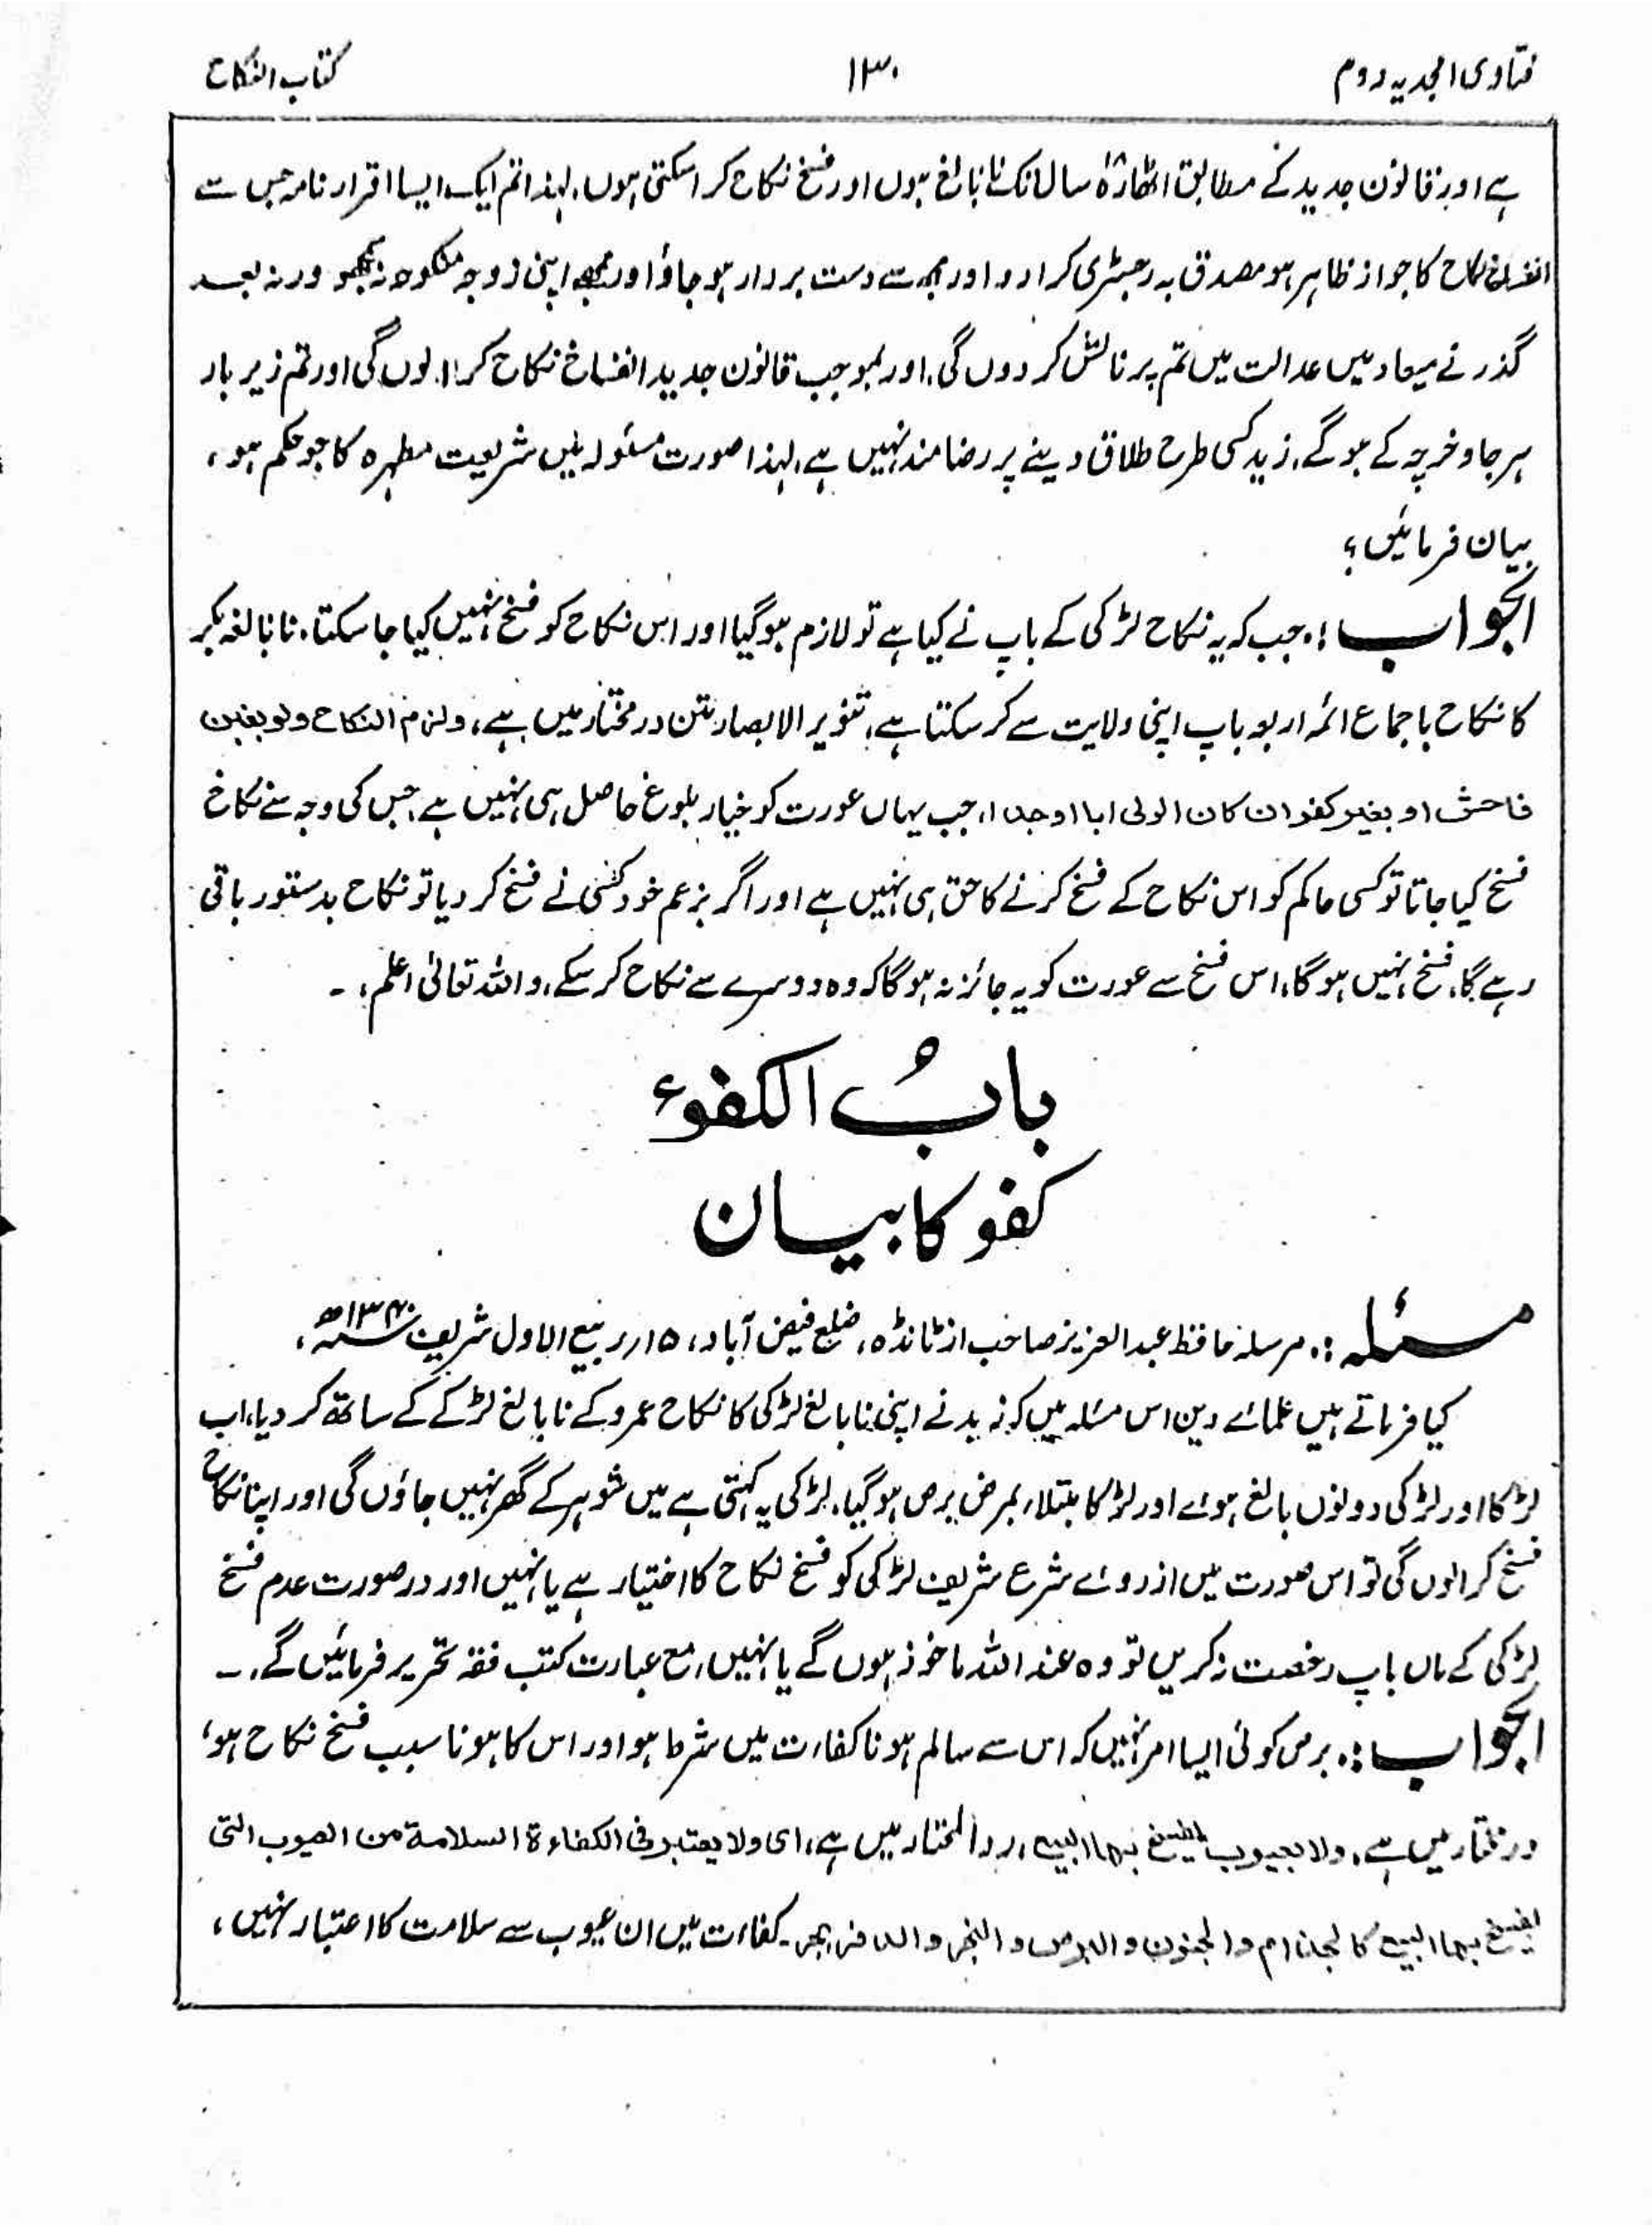 فتاوی امجدیہ دوم
۱۳۰
کتاب النکاح
ہے اور قانون جدید کے مطابق اٹھارہ سال تک نا بالغ ہوں اور فسخ نکاح کرا سکتی ہوں، لہذا تم ایک ایسا اقرار نامہ جس سے
انفساخ نکاح کا جواز ظاہر ہو مصدق بہ رجسٹری کرا دو اور مجھ سے دست بردار ہو جاؤ اور مجھے اپنی زوجہ منکوحہ نہ سمجھو ورنہ بعد
گذرنے میعاد میں عدالت میں تم پر نالش کر دوں گی، اور بموجب قانون جدید انفساخ نکاح کرا لوں گی اور تم زیر بار
ہرجا و خرچہ کے ہو گے، زید کسی طرح طلاق دینے پر رضا مند نہیں ہے، لہذا صورت مسئولہ میں شریعت مطہرہ کا جو حکم ہو،
بیان فرمائیں؟
الجواب :۔ جب کہ یہ نکاح لڑکی کے باپ نے کیا ہے تو لازم ہو گیا اور اس نکاح کو فسخ نہیں کیا جا سکتا، نا بالغہ بکر
کا نکاح باجماع ائمہ اربعہ باپ اپنی ولایت سے کر سکتا ہے، تنویر الابصار متن در مختار میں ہے، ولزم النکاح ولو بغبن
فاحش او بغیر کفو ان کان الولی ابا او جدا، جب یہاں عورت کو خیار بلوغ حاصل ہی نہیں ہے جس کی وجہ سے نکاح
فسخ کیا جاتا تو کسی حاکم کو اس نکاح کے فسخ کرنے کا حق ہی نہیں ہے اور اگر بزعم خود کسی نے فسخ کر دیا تو نکاح بدستور باقی
رہے گا، فسخ نہیں ہو گا، اس فسخ سے عورت کو یہ جائز نہ ہو گا کہ وہ دوسرے سے نکاح کر سکے، واللہ تعالیٰ اعلم، ۔
بابُ الکفوء
کفو کا بیان
مسئلہ :۔ مرسلہ حافظ عبدالعزیز صاحب از ٹانڈہ، ضلع فیض آباد، ۱۵؍ ربیع الاول شریف ۱۳۴۰ھ،
کیا فرماتے ہیں علمائے دین اس مسئلہ میں کہ زید نے اپنی نا بالغ لڑکی کا نکاح عمرو کے نا بالغ لڑکے کے ساتھ کر دیا، اب
لڑکا اور لڑکی دونوں بالغ ہوئے اور لڑکا مبتلاء بمرض برص ہو گیا، لڑکی یہ کہتی ہے میں شوہر کے گھر نہیں جاؤں گی اور اپنا نکاح
فسخ کرا لوں گی تو اس صورت میں از روئے شرع شریف لڑکی کو فسخ نکاح کا اختیار ہے یا نہیں اور در صورت عدم فسخ
لڑکی کے ماں باپ رخصت نہ کریں تو وہ عند اللہ ماخوذ ہوں گے یا نہیں، مع عبارت کتب فقہ تحریر فرمائیں گے، ۔
الجواب :۔ برص کوئی ایسا امر نہیں کہ اس سے سالم ہونا کفاءت میں شرط ہو اور اس کا ہونا سبب فسخ نکاح ہو،
در مختار میں ہے، ولا بعیوب یفسخ بہا البیع، رد المحتار میں ہے، ای ولا یعتبر فی الکفاءۃ السلامۃ من العیوب التی
یفسخ بہا البیع کالجذام والجنون والبرص والبخر والدفر بحر۔ کفاءت میں ان عیوب سے سلامت کا اعتبار نہیں،